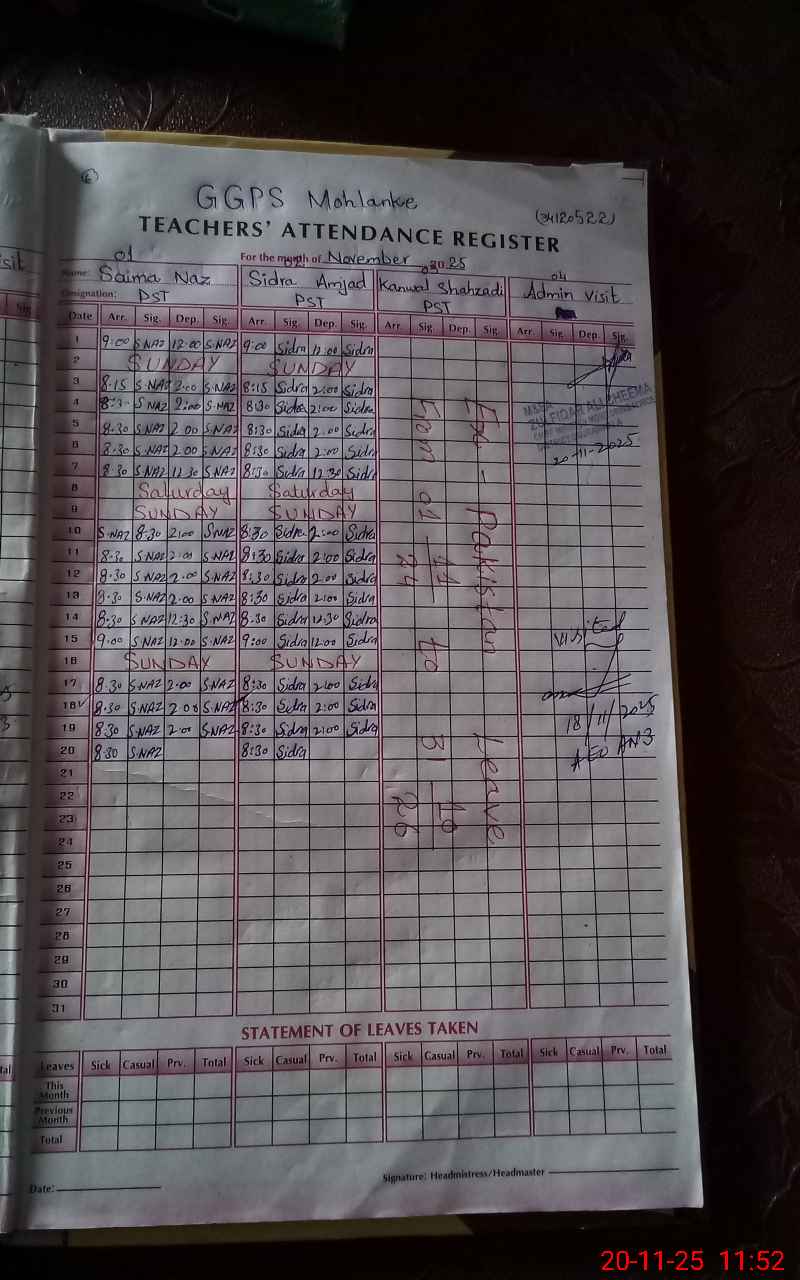 6
GGPS Mohlanke
(34120522)
TEACHERS' ATTENDANCE REGISTER
For the month of November 2025
01 02 03 04
Name: Saima Naz Sidra Amjad Kanwal Shahzadi Admin Visit
Designation: PST PST PST
Date Arr. Sig. Dep. Sig. Arr. Sig. Dep. Sig. Arr. Sig. Dep. Sig. Arr. Sig. Dep. Sig.
1 9:00 S.NAZ 12:00 S.NAZ 9:00 Sidra 12:00 Sidra
2 SUNDAY SUNDAY
3 8:15 S.NAZ 2:00 S.NAZ 8:15 Sidra 2:00 Sidra
4 8:30 S.NAZ 2:00 S.NAZ 8:30 Sidra 2:00 Sidra
5 8:30 S.NAZ 2.00 S.NAZ 8:30 Sidra 2:00 Sidra
6 8:30 S.NAZ 2.00 S.NAZ 8:30 Sidra 2:00 Sidra
7 8:30 S.NAZ 12:30 S.NAZ 8:30 Sidra 12:30 Sidra
8 Saturday Saturday
9 SUNDAY SUNDAY
10 S.NAZ 8:30 2:00 S.NAZ 8:30 Sidra 2:00 Sidra
11 8:30 S.NAZ 2:00 S.NAZ 8:30 Sidra 2:00 Sidra
12 8:30 S.NAZ 2:00 S.NAZ 8:30 Sidra 2:00 Sidra
13 8:30 S.NAZ 2:00 S.NAZ 8:30 Sidra 2:00 Sidra
14 8:30 S.NAZ 12:30 S.NAZ 8:30 Sidra 12:30 Sidra
15 9:00 S.NAZ 12:00 S.NAZ 9:00 Sidra 12:00 Sidra
16 SUNDAY SUNDAY
17 8:30 S.NAZ 2:00 S.NAZ 8:30 Sidra 2:00 Sidra
18 8:30 S.NAZ 2:00 S.NAZ 8:30 Sidra 2:00 Sidra
19 8:30 S.NAZ 2:00 S.NAZ 8:30 Sidra 2:00 Sidra
20 8:30 S.NAZ 8:30 Sidra
21
22
23
24
25
26
27
28
29
30
31
Ex - Pakistan Leave
From 01 11/24 to 31 10/26
20-11-2025
Visited
18/11/2025
AEO
STATEMENT OF LEAVES TAKEN
Leaves Sick Casual Prv. Total Sick Casual Prv. Total Sick Casual Prv. Total Sick Casual Prv. Total
This Month
Previous Month
Total
Date:
Signature: Headmistress/Headmaster
20-11-25 11:52